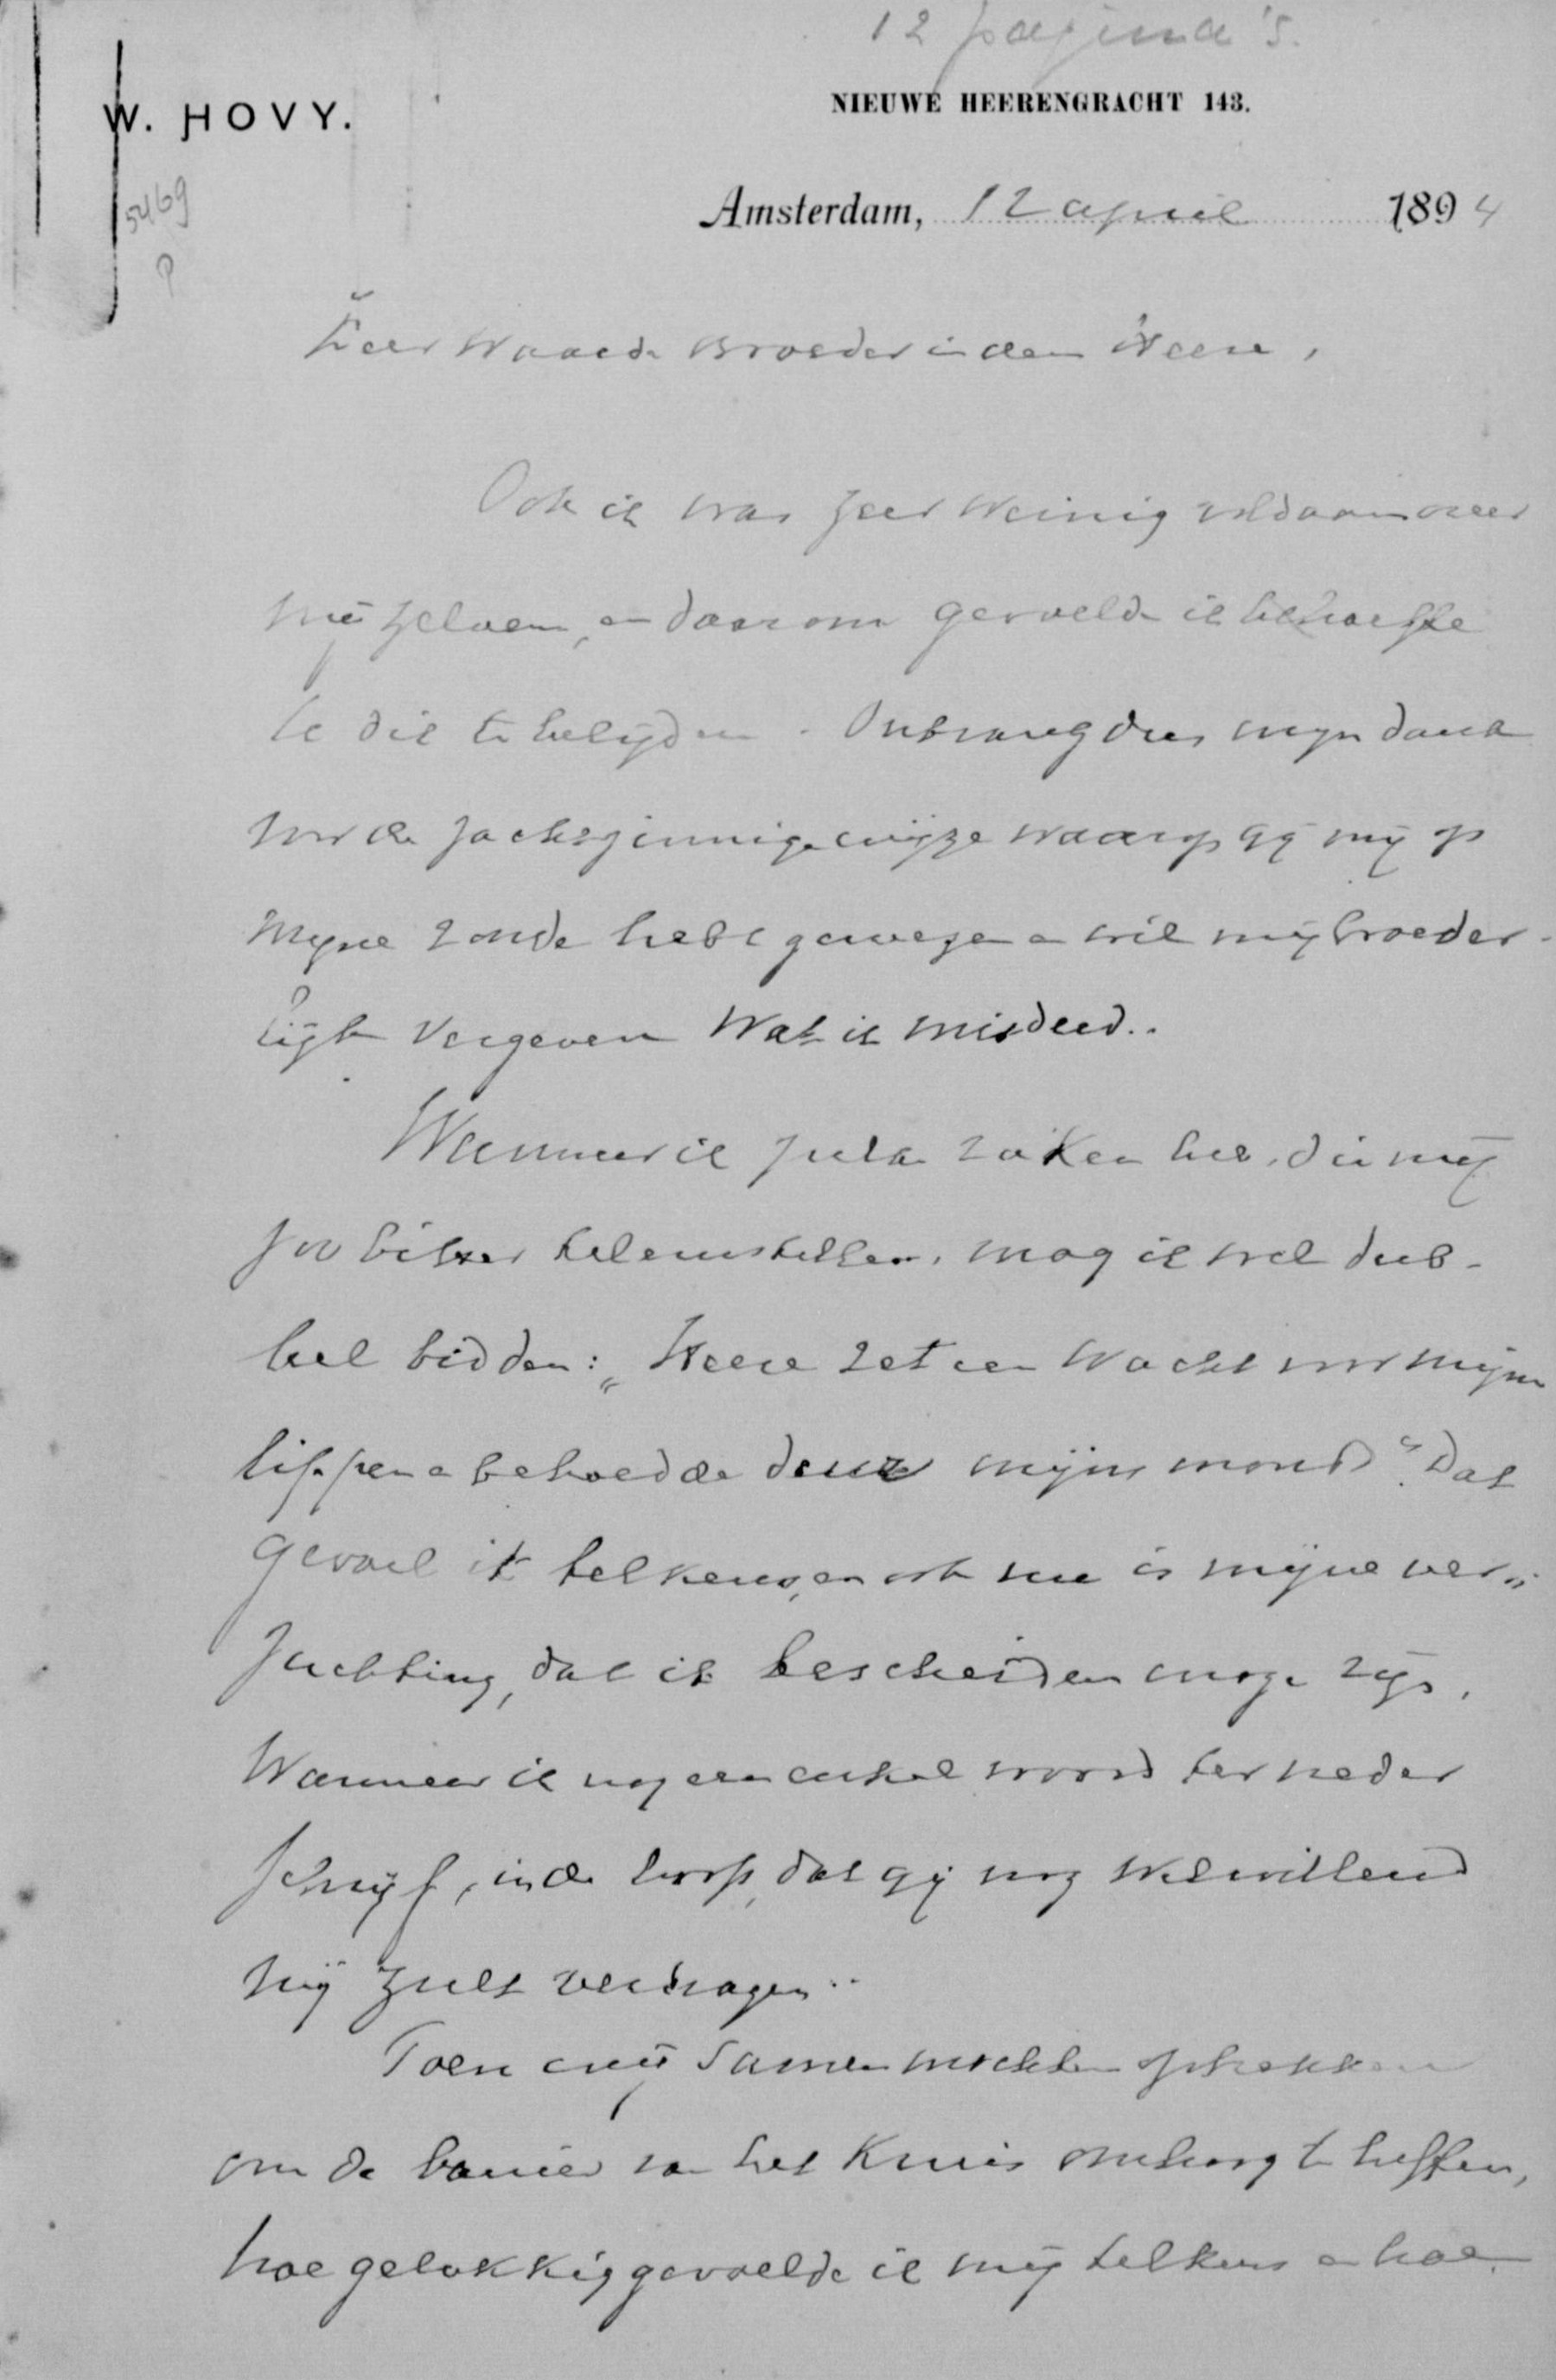 12 pagina's.
W. HOVY.
NIEUWE HEERENGRACHT 143.
5469
Amsterdam, 12 april 1894
Zeer Waarde Broeder in den Heere,
Ook ik was zeer weinig voldaan over
mij zelven, en daarom gevoelde ik behoefte
U dit te belijden. Ontvang dus mijn dank
voor de zachtzinnige wijze waarop gij mij op
mijne zonde hebt gewezen en wil mij broeder-
lijk vergeven wat ik misdeed.
Wanneer ik zulke zaken heb, die mij
zoo bitter teleurstellen, mag ik wel dub-
bel bidden: „Heere zet een wacht voor mijn
lippen en behoed de deur mijns monds". Dat
gevoel ik telkens, en ook nu is mijne ver„
zuchting, dat ik bescheiden moge zijn,
Wanneer ik nog een enkel woord ter neder
schrijf, in de hoop, dat gij nog welwillend
mij zult verdragen.
Toen wij samen mochten optrekken
om de banier van het Kruis omhoog te heffen,
hoe gelukkig gevoelde ik mij telkens en hoe